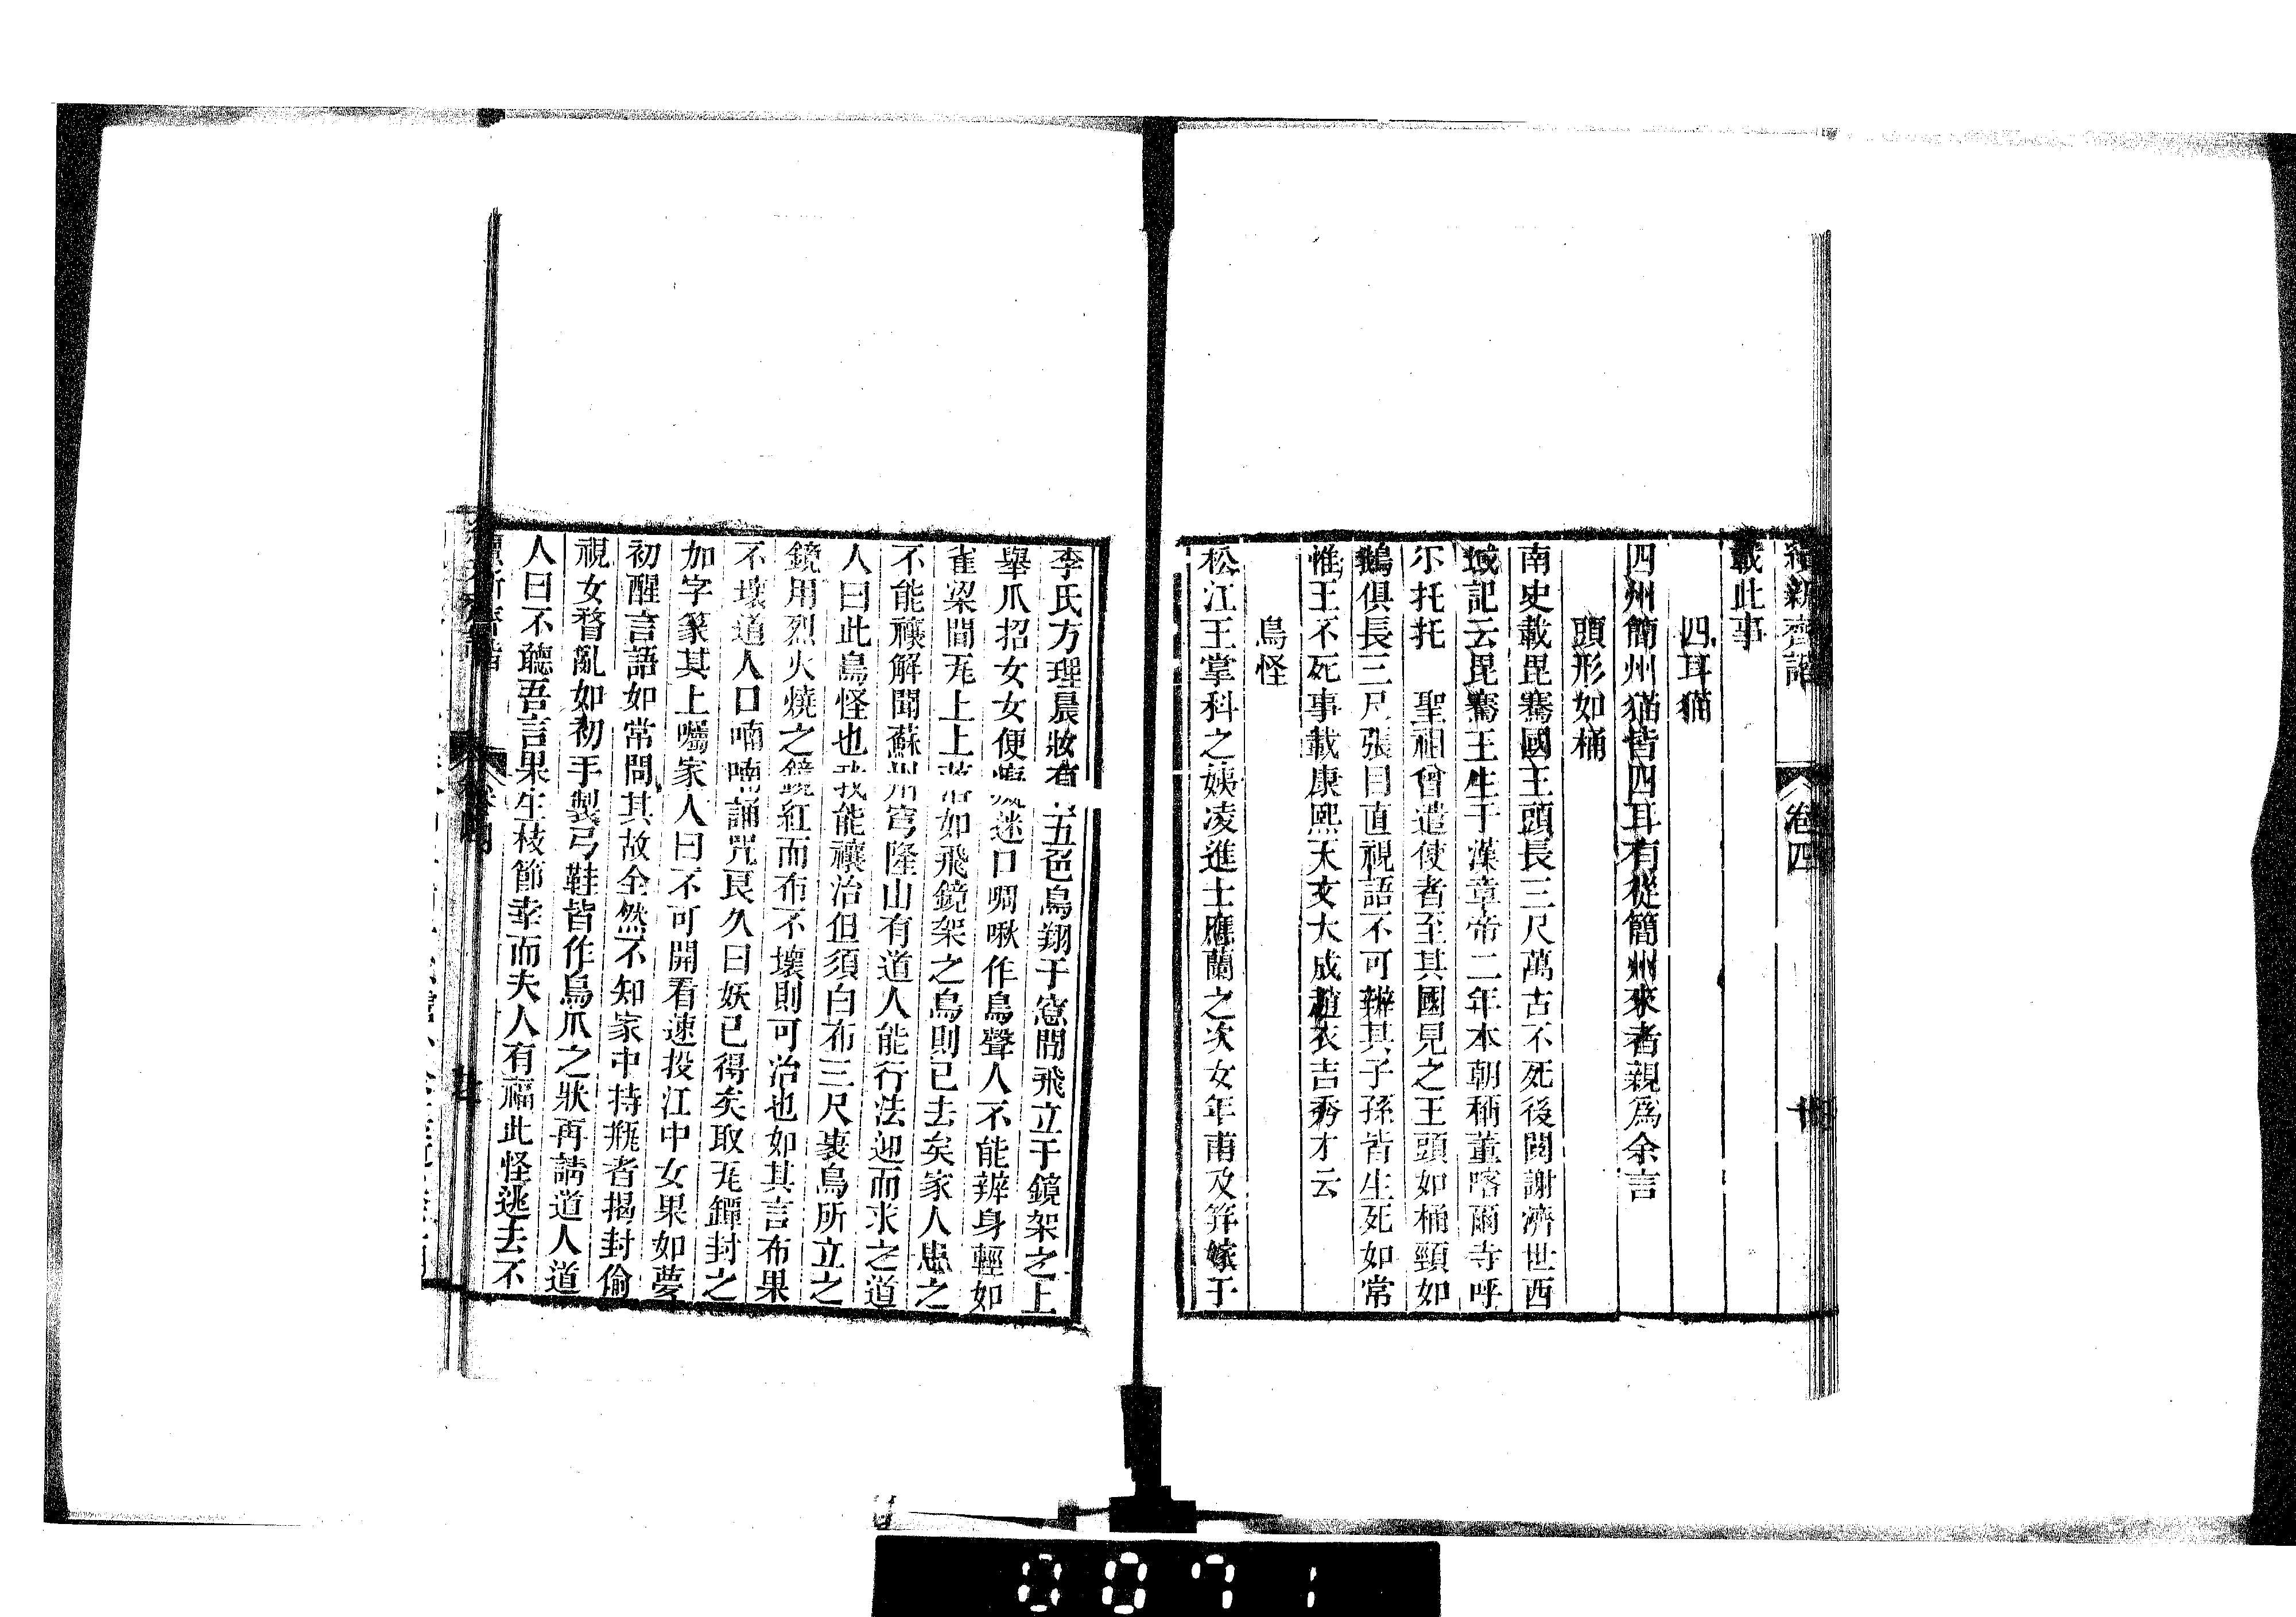 續新齊諧 卷四
載此事
四耳猫
四州簡州猫皆四耳有從簡州來者親爲余言
頭形如桶
南史載毘騫國王頭長三尺萬古不死後閱謝濟世西
域記云毘騫王生于漢章帝二年本朝稱董喀爾寺呼
尔托托 聖祖曾遣使者至其國見之王頭如桶頸如
鵝俱長三尺張目直視語不可辨其子孫皆生死如常
惟王不死事載康熙天文大成趙衣吉秀才云
鳥怪
松江王掌科之姨凌進士應蘭之次女年甫及笄嫁于
李氏方理晨妝有五色鳥翔于窻間飛立于鏡架之上
舉爪招女女便迷口啁啾作鳥聲人不能辨身輕如
雀梁間瓦上上落如飛鏡架之鳥則已去矣家人患之
不能禳解聞蘇州穹隆山有道人能行法迎而求之道
人曰此鳥怪也我能禳治但須白布三尺裹鳥所立之
鏡用烈火燒之鏡紅而布不壞則可治也如其言布果
不壞道人口喃喃誦咒良久曰妖已得矣取瓦罈封之
加字篆其上囑家人曰不可開看速投江中女果如夢
初醒言語如常問其故全然不知家中持瓶者揭封偷
視女瞀亂如初手製弓鞋皆作鳥爪之狀再請道人道
人曰不聽吾言果生枝節幸而夫人有福此怪逃去不
0071